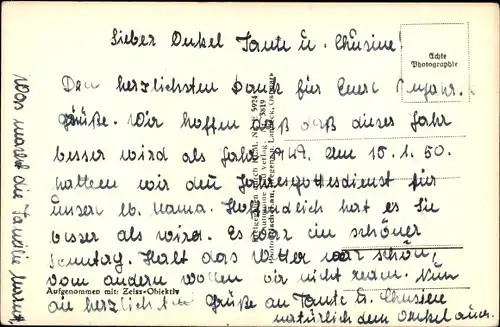 Lieber Onkel Tante u. Cousine!
Echte
Photographie
Den herzlichsten Dank für Eure Neujahr.
grüße. Wir hoffen daß daß dieses Jahr
besser wird als Jahr 1949. Am 15.1.50.
hatten wir den Jahresgottesdienst für
unsere lb. Mama. Hoffendlich hat es Sie
besser als wird. Es war ein schöner
Sonntag. Halt das Wetter war schön,
vom andern wollen wir nicht reden. Nun
die herzlichsten Grüße an Tante u. Cousine
natürlich dem Onkel auch.
Aufgenommen mit: Zeiss-Objektiv
Was macht die Familie